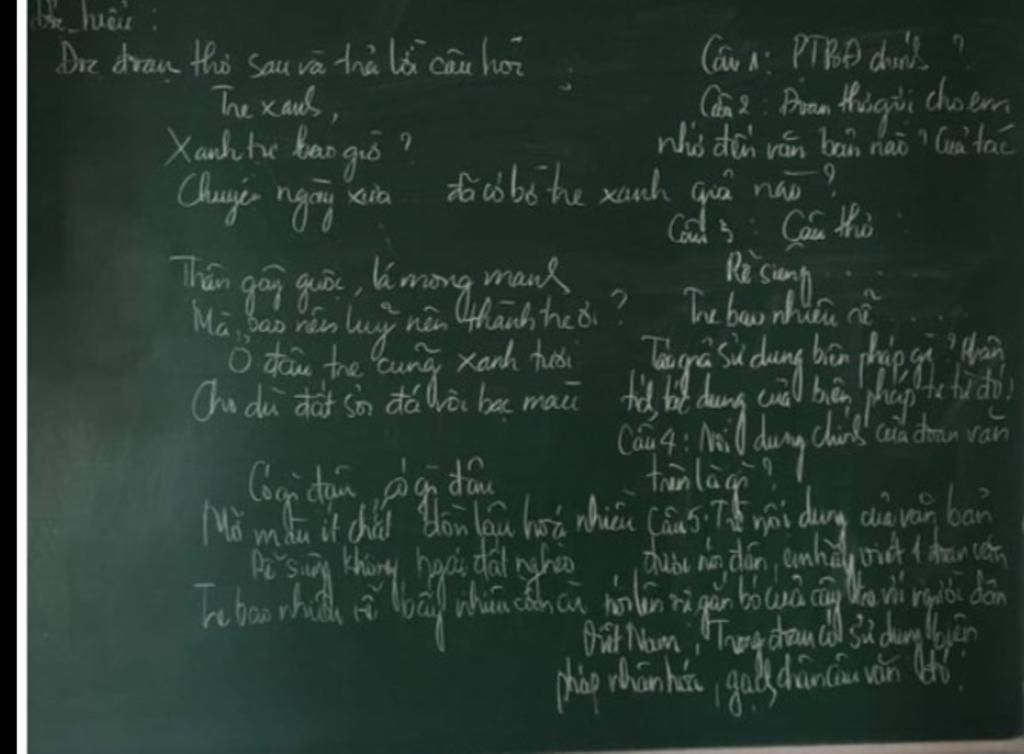 Đọc hiểu :
Đọc đoạn thơ sau và trả lời câu hỏi :
Tre xanh,
Xanh tự bao giờ ?
Chuyện ngày xưa đã có bờ tre xanh
Thân gầy guộc, lá mong manh
Mà sao nên luỹ nên thành tre ơi ?
Ở đâu tre cũng xanh tươi
Cho dù đất sỏi đá vôi bạc màu
Có gì đâu, có gì đâu
Mỡ màu ít chất dồn lâu hoá nhiều
Rễ siêng không ngại đất nghèo
Tre bao nhiêu rễ bấy nhiêu cần cù
Câu 1: PTBĐ chính ?
Câu 2: Đoạn thơ gợi cho em
nhớ đến văn bản nào ? Của tác
giả nào ?
Câu 3 : Câu thơ :
Rễ siêng .....
Tre bao nhiêu rễ .....
Tác giả sử dụng biện pháp gì ? Phân
tích tác dụng của biện pháp tu từ đó ?
Câu 4: Nội dung chính của đoạn văn
trên là gì ?
Câu 5: Từ nội dung của văn bản
em hãy viết 1 đoạn văn
nói lên sự gắn bó của cây tre với người dân
Việt Nam, Trong đoạn có sử dụng biện
pháp nhân hoá, gạch chân câu văn đó.